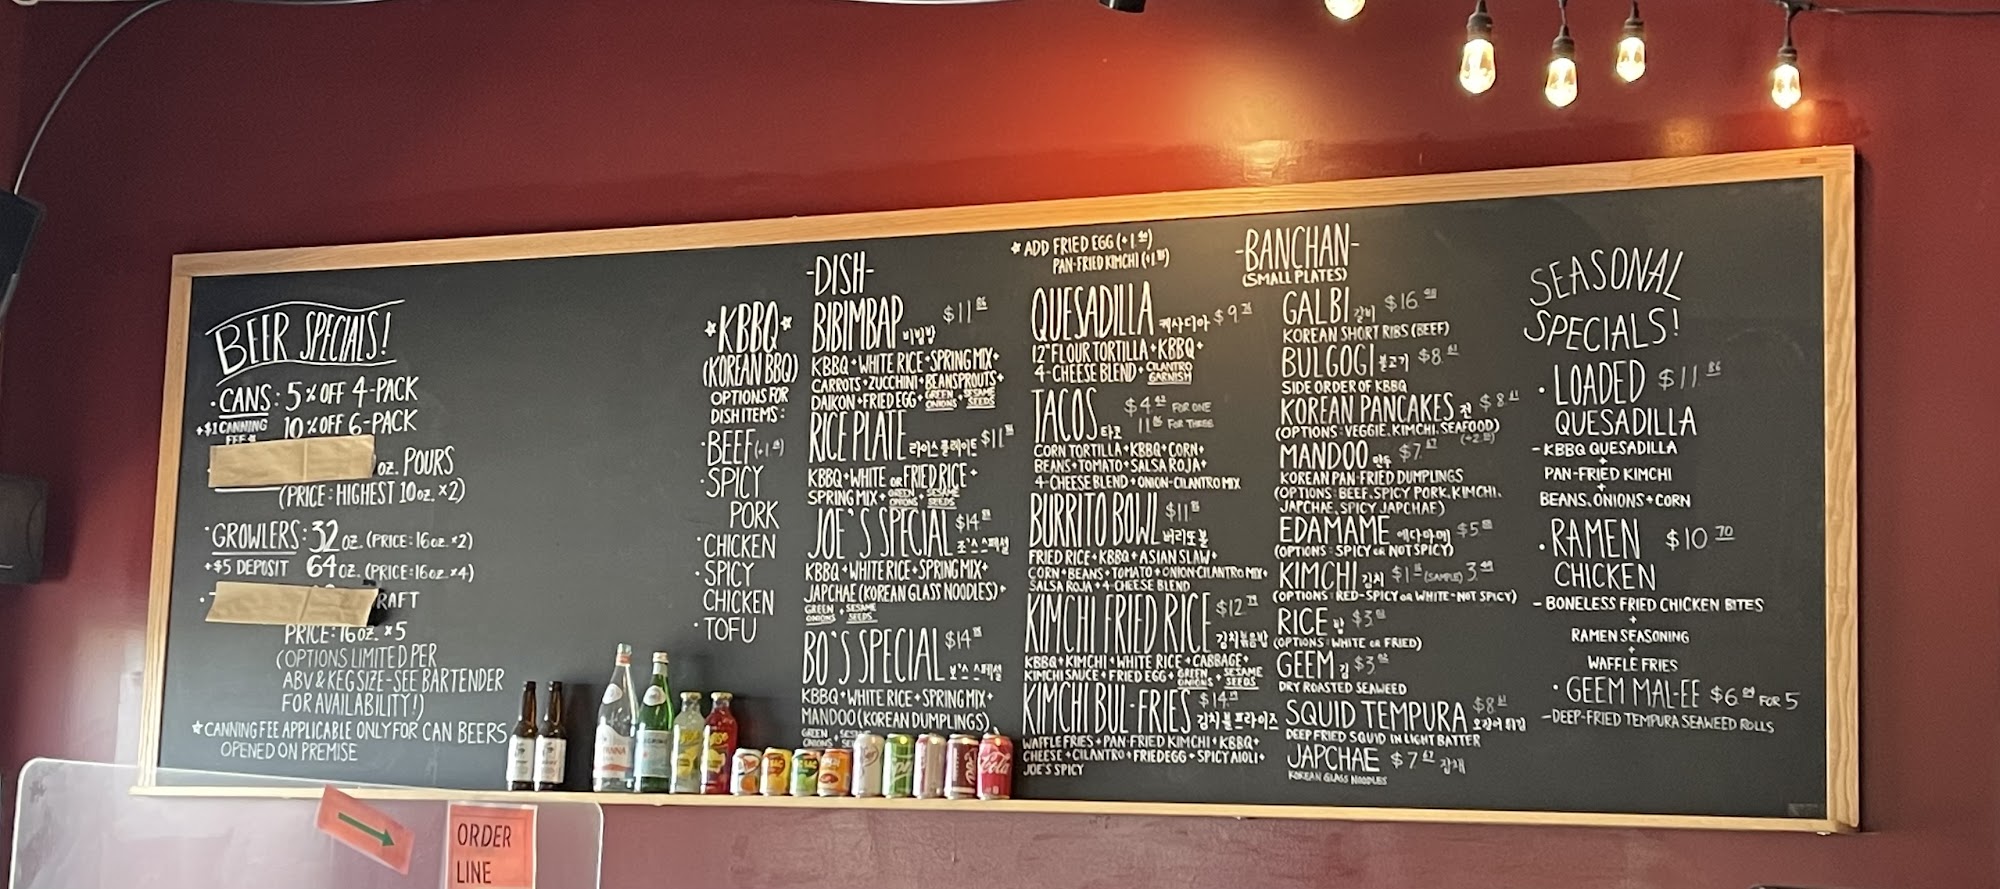 BEER SPECIALS!
• CANS: 5% OFF 4-PACK
+$1 CANNING FEE* 10% OFF 6-PACK
OZ. POURS
(PRICE: HIGHEST 10oz. x2)
• GROWLERS: 32 oz. (PRICE: 16oz. x2)
+$5 DEPOSIT 64 oz. (PRICE: 16oz. x4)
RAFT
PRICE: 16oz. x5
(OPTIONS LIMITED PER
ABV & KEG SIZE - SEE BARTENDER
FOR AVAILABILITY!)
* CANNING FEE APPLICABLE ONLY FOR CAN BEERS
OPENED ON PREMISE
*KBBQ*
(KOREAN BBQ)
OPTIONS FOR
DISH ITEMS:
• BEEF
• SPICY
PORK
• CHICKEN
• SPICY
CHICKEN
• TOFU
-DISH-
BIBIMBAP 비빔밥 $11
KBBQ + WHITE RICE + SPRING MIX +
CARROTS + ZUCCHINI + BEANSPROUTS +
DAIKON + FRIED EGG + GREEN ONIONS + SESAME SEEDS
RICE PLATE 라이스 플레이트 $11
KBBQ + WHITE OR FRIED RICE +
SPRING MIX + GREEN ONIONS + SESAME SEEDS
JOE'S SPECIAL $14
조's 스페셜
KBBQ + WHITE RICE + SPRING MIX +
JAPCHAE (KOREAN GLASS NOODLES) +
GREEN ONIONS + SESAME SEEDS
BO'S SPECIAL $14
보's 스페셜
KBBQ + WHITE RICE + SPRING MIX +
MANDOO (KOREAN DUMPLINGS)
GREEN ONIONS + SESAME
* ADD FRIED EGG
PAN-FRIED KIMCHI
QUESADILLA 케사디아 $9
12" FLOUR TORTILLA + KBBQ +
4-CHEESE BLEND + CILANTRO GARNISH
TACOS 타코 $4 FOR ONE
11 FOR THREE
CORN TORTILLA + KBBQ + CORN +
BEANS + TOMATO + SALSA ROJA +
4-CHEESE BLEND + ONION-CILANTRO MIX
BURRITO BOWL $11
버리또볼
FRIED RICE + KBBQ + ASIAN SLAW +
CORN + BEANS + TOMATO + ONION-CILANTRO MIX +
SALSA ROJA + 4-CHEESE BLEND
KIMCHI FRIED RICE $12
김치볶음밥
KBBQ + KIMCHI + WHITE RICE + CABBAGE +
KIMCHI SAUCE + FRIED EGG + GREEN ONIONS + SESAME SEEDS
KIMCHI BUL-FRIES $14
김치불프라이즈
WAFFLE FRIES + PAN-FRIED KIMCHI + KBBQ +
CHEESE + CILANTRO + FRIED EGG + SPICY AIOLI +
JOE'S SPICY
-BANCHAN-
(SMALL PLATES)
GALBI 갈비 $16
KOREAN SHORT RIBS (BEEF)
BULGOGI 불고기 $8
SIDE ORDER OF KBBQ
KOREAN PANCAKES 전 $8
(OPTIONS: VEGGIE, KIMCHI, SEAFOOD)
MANDOO 만두 $7
KOREAN PAN-FRIED DUMPLINGS
(OPTIONS: BEEF, SPICY PORK, KIMCHI,
JAPCHAE, SPICY JAPCHAE)
EDAMAME 에다마메 $5
(OPTIONS: SPICY OR NOT SPICY)
KIMCHI 김치 $1 (SAMPLE) 3
(OPTIONS: RED-SPICY OR WHITE-NOT SPICY)
RICE 밥 $3
(OPTIONS: WHITE OR FRIED)
GEEM 김 $3
DRY ROASTED SEAWEED
SQUID TEMPURA $8
오징어 튀김
DEEP FRIED SQUID IN LIGHT BATTER
JAPCHAE $7 잡채
KOREAN GLASS NOODLES
SEASONAL
SPECIALS!
• LOADED $11.86
QUESADILLA
- KBBQ QUESADILLA
+
PAN-FRIED KIMCHI
+
BEANS, ONIONS + CORN
• RAMEN $10.70
CHICKEN
- BONELESS FRIED CHICKEN BITES
+
RAMEN SEASONING
+
WAFFLE FRIES
• GEEM MAL-EE $6 FOR 5
- DEEP-FRIED TEMPURA SEAWEED ROLLS
ORDER
LINE